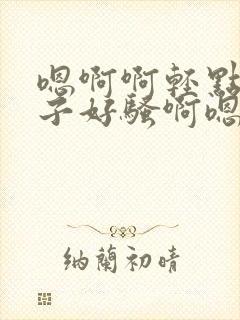 嗯啊啊轻點
子好騷啊嗯
纳蘭初晴